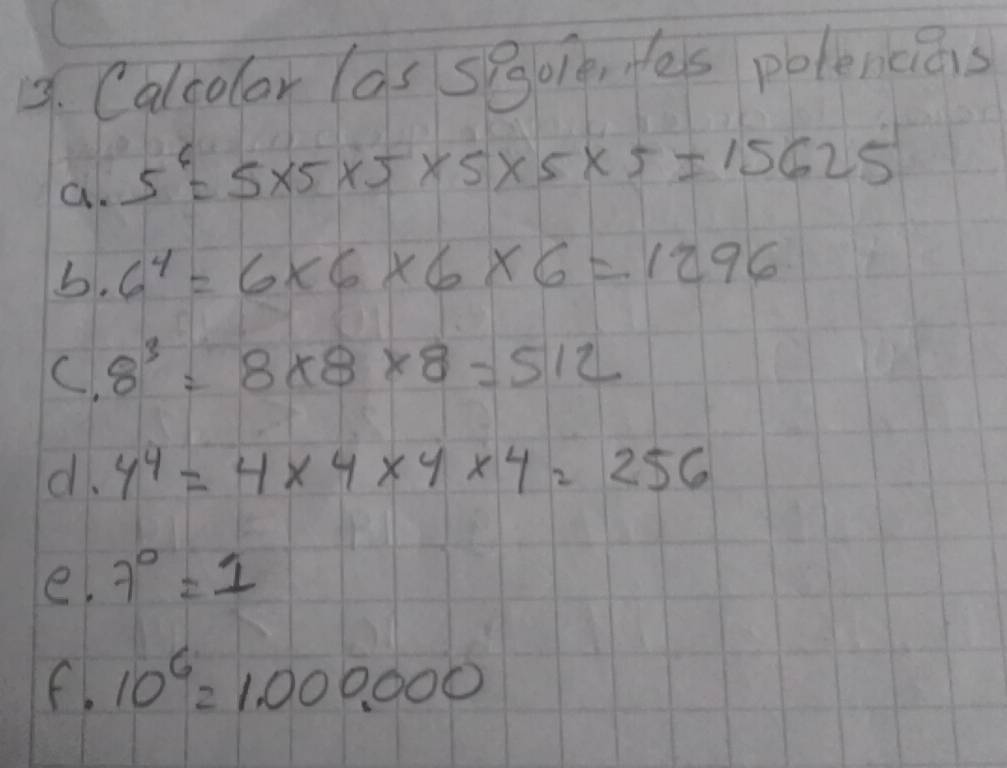 3. Calcolar las sigoientes potencias
a. 5⁶ = 5x5x5x5x5x5 = 15625
b. 6⁴ = 6x6x6x6 = 1296
c. 8³ = 8x8x8 = 512
d. 4⁴ = 4x4x4x4 = 256
e. 7⁰ = 1
f. 10⁶ = 1.000.000